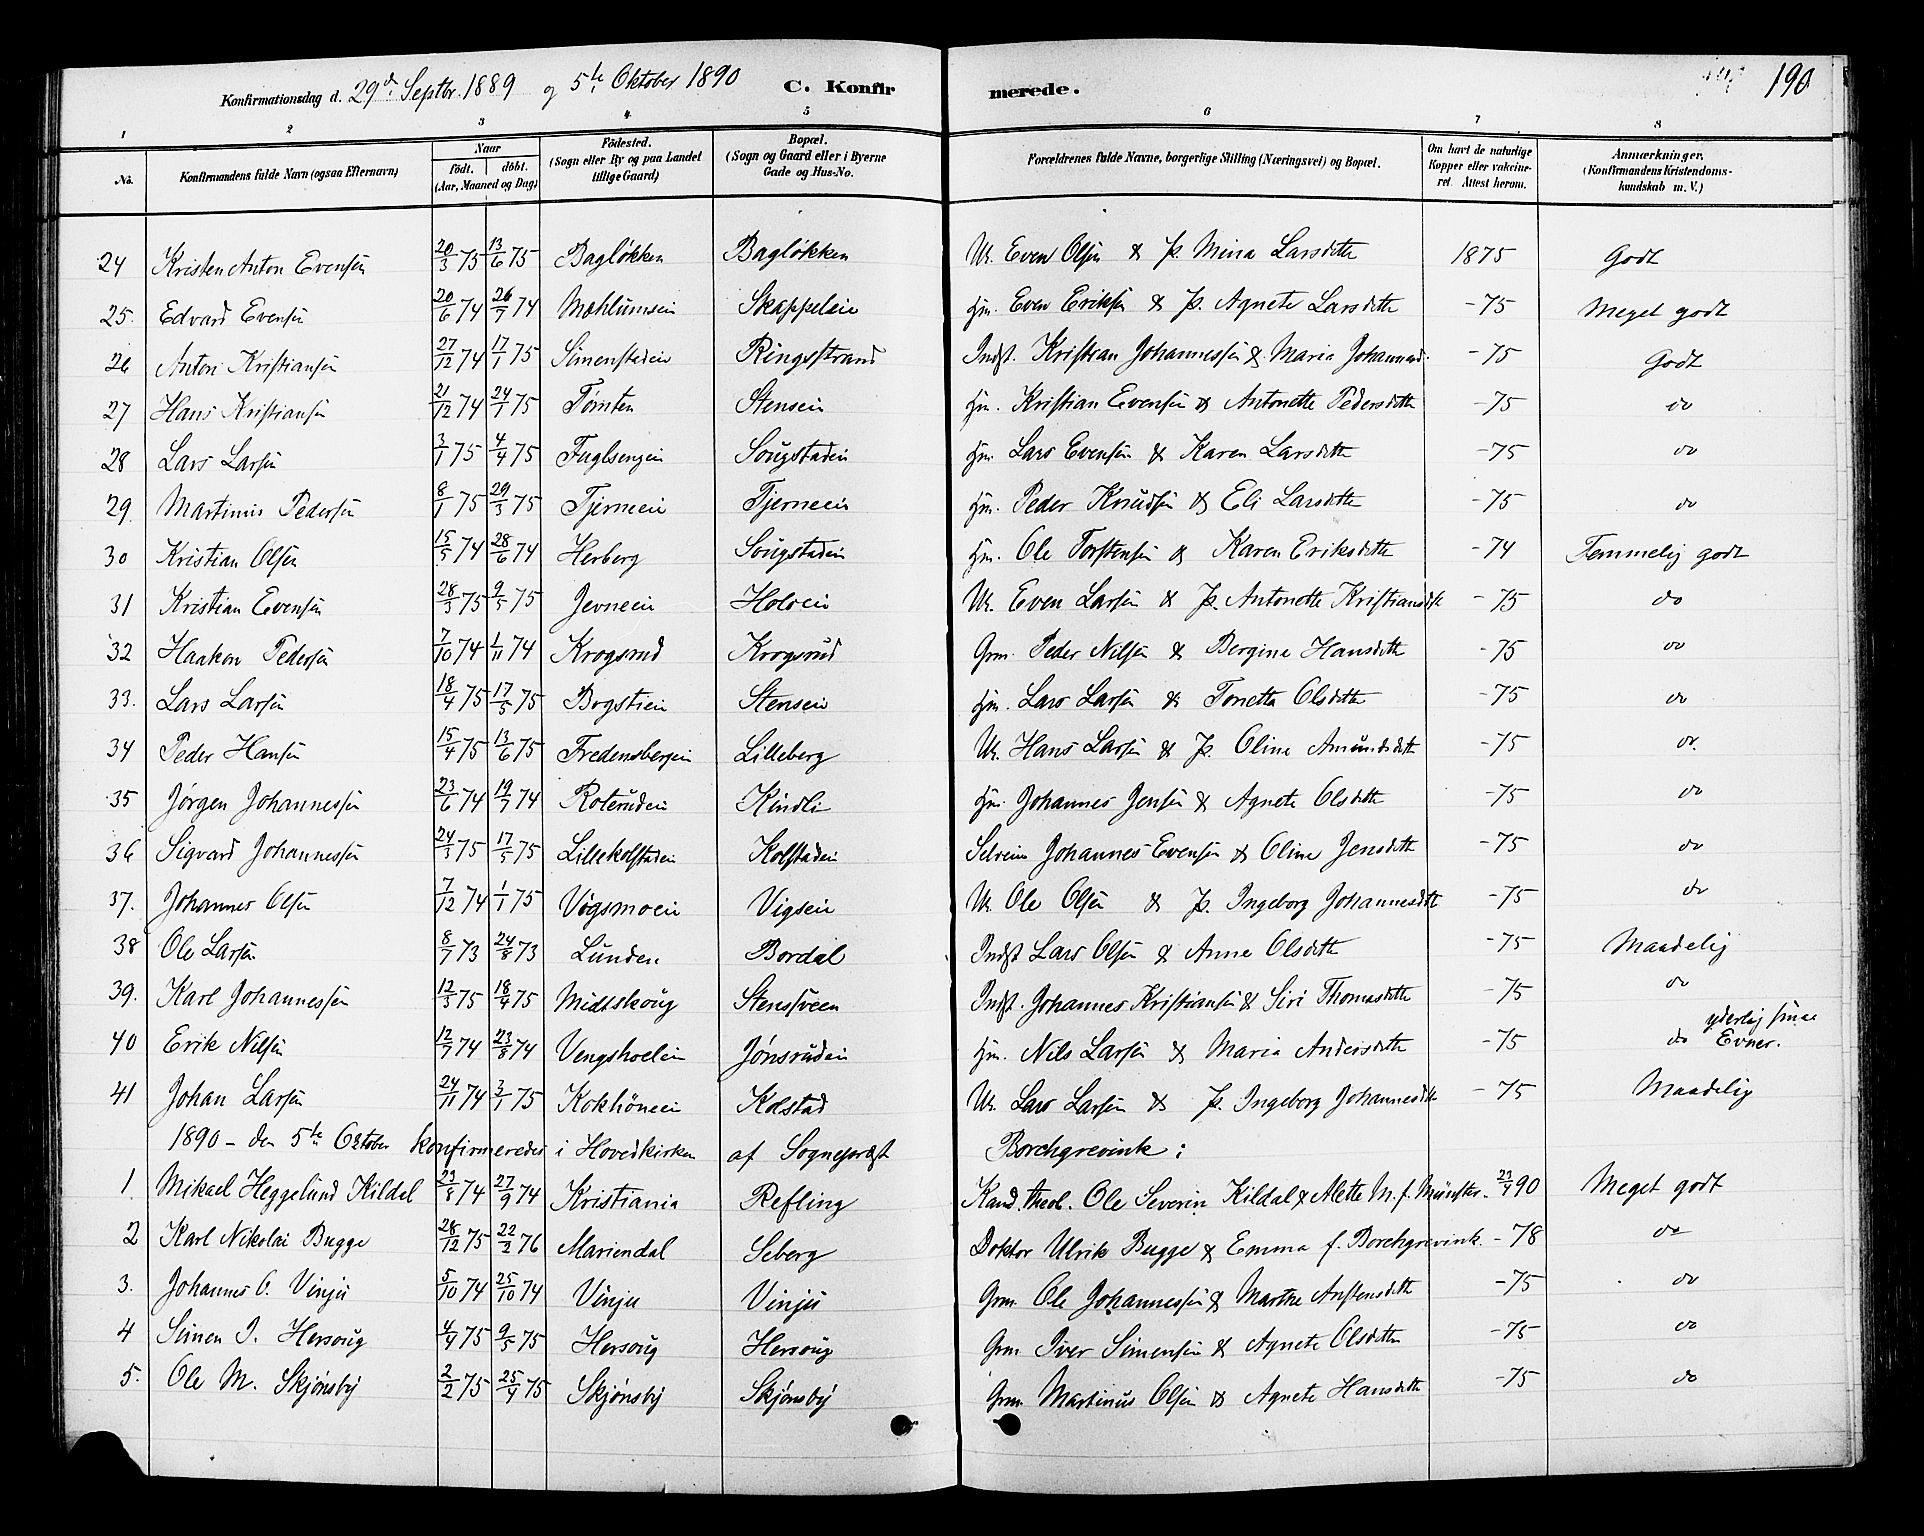 Konfirmationsdag d. 29de Septbr. 1889 og 5te Oktober 1890 C. Konfirmerede. 190
1 2 3 4 5 6 7 8
No. Konfirmandens fulde Navn (ogsaa Efternavn) Naar født. døbt. (Aar, Maaned og Dag) Fødested. (Sogn eller By og paa Landet tillige Gaard) Bopæl. (Sogn og Gaard eller i Byerne Gade og Hus-No. Forældrenes fulde Navne, borgerlige Stilling (Næringsvei) og Bopæl. Om havt de naturlige Kopper eller vakcineret. Attest herom. Anmærkninger. (Konfirmandens Kristendomskundskab m. V.)
24 Kristen Anton Evensen 20/3 75 13/6 75 Bagløkken Bagløkken U. Even Olsen & P. Mina Larsdtt 1875 Godt
25. Edvard Evensen 20/6 74 26/7 74 Mæhlumsein Skappelein Hm. Even Eriksen & P. Agnete Larsdtt -75 Meget godt
26 Anton Kristiansen 27/12 74 17/1 75 Simenstadein Ringstrand Indst. Kristian Johannessen & Maria Johannesd. -75 Godt
27 Hans Kristiansen 21/12 74 24/1 75 Tømten Stensein Hm. Kristian Evensen & Antonette Pedersdtt -75 do
28 Lars Larsen 3/1 75 4/4 75 Fuglsengein Sougstadein Hm. Lars Evensen & Karen Larsdtt -75 do
29. Martinus Pedersen 8/1 75 29/3 75 Tjerneein Tjerneein Hm. Peder Knudsen & Eli Larsdtt -75 do
30 Kristian Olsen 15/5 74 28/6 74 Herberg Sougstadein Hm. Ole Torstensen & Karen Eriksdtt -74 Temmelig godt
31 Kristian Evensen 28/3 75 9/5 75 Jevneein Holoein U. Even Larsen & P. Antonette Kristiansdtt -75 do
32 Haakon Pedersen 7/10 74 1/11 74 Krogsrud Krogsrud Grm. Peder Nilsen & Bergine Hansdtt -75 do
33. Lars Larsen 18/4 75 17/5 75 Bogstiein Stensein Hm. Lars Larsen & Tonetta Olsdtt -75 do
34 Peder Hansen 15/4 75 13/6 75 Fredensbergein Lilleberg U. Hans Larsen & P. Oline Amundsdtt -75 do.
35 Jørgen Johannessen 23/6 74 19/7 74 Roterudein Kindli Hm. Johannes Jensen & Agnete Olsdtt -75 do
36 Sigvard Johannessen 24/3 75 17/5 75 Lillekolstadein Kolstadein Selveier Johannes Evensen & Oline Jensdtt -75 do
37. Johannes Olsen 7/12 74 1/1 75 Vogsmoein Vigsein U. Ole Olsen & P. Ingeborg Johannesdtt -75 do
38 Ole Larsen 8/7 73 24/8 73 Lunden Bordal Indst Lars Olsen & Anne Olsdtt -75 Maadelig
39. Karl Johannessen 12/3 75 18/4 75 Midtskoug Stenssveen Indst. Johannes Kristiansen & Siri Thomasdtt -75 do
40 Erik Nilsen 12/7 74 23/8 74 Vengshoelein Jønsrudein Hm. Nils Larsen & Maria Andersdtt -75 do yderlig smaa Evner.
41 Johan Larsen 24/11 74 3/1 75 Kokhöneein Kolstad U. Lars Larsen & P. Ingeborg Johannesdtt -75 Maadelig
1890 - den 5te Oktober konfirmeredes i Hovedkirken af Sogneprest Borchgrevink:
1. Mikael Heggelund Kildal 23/8 74 27/9 74 Kristiania Refling Kand. theol. Ole Severin Kildal & Alette M. f. Münster. 90 Meget godt
2 Karl Nikolai Bugge 28/12 75 22/2 76 Mariendal Seberg Doktor Ulrik Bugge & Emma f. Borchgrevink. -78 do
3. Johannes O. Vinju 5/10 74 25/10 74 Vinju Vinju Grm. Ole Johannessen & Marthe Anstensdtt -75 do
4 Simen I. Hersoug 4/4 75 9/5 75 Hersoug Hersoug Grm. Iver Simensen & Agnete Olsdtt -75 do
5. Ole M. Skjønsby 2/2 75 25/4 75 Skjønsby Skjønsby Grm. Martinus Olsen & Agnete Hansdtt -75 do